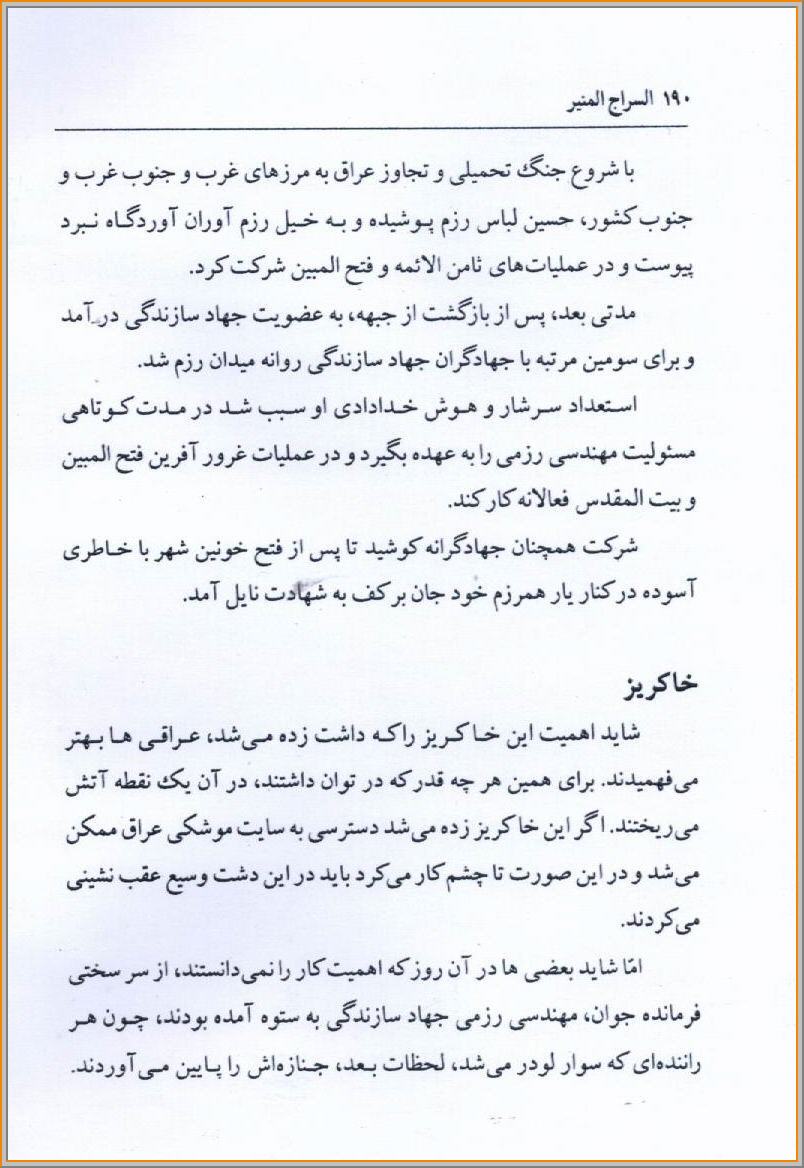 ۱۹۰ السراج المنیر
با شروع جنگ تحمیلی و تجاوز عراق به مرزهای غرب و جنوب غرب و
جنوب کشور، حسین لباس رزم پوشیده و به خیل رزم آوران آوردگاه نبرد
پیوست و در عملیات‌های ثامن الائمه و فتح المبین شرکت کرد.
مدتی بعد، پس از بازگشت از جبهه، به عضویت جهاد سازندگی در آمد
و برای سومین مرتبه با جهادگران جهاد سازندگی روانه میدان رزم شد.
استعداد سرشار و هوش خدادادی او سبب شد در مدت کوتاهی
مسئولیت مهندسی رزمی را به عهده بگیرد و در عملیات غرور آفرین فتح المبین
و بیت المقدس فعالانه کار کند.
شرکت همچنان جهادگرانه کوشید تا پس از فتح خونین شهر با خاطری
آسوده در کنار یار همرزم خود جان بر کف به شهادت نایل آمد.
خاکریز
شاید اهمیت این خاکریز راکه داشت زده می‌شد، عراقی ها بهتر
می‌فهمیدند. برای همین هر چه قدر که در توان داشتند، در آن یک نقطه آتش
می‌ریختند. اگر این خاکریز زده می‌شد دسترسی به سایت موشکی عراق ممکن
می‌شد و در این صورت تا چشم کار می‌کرد باید در این دشت وسیع عقب نشینی
می‌کردند.
امّا شاید بعضی ها در آن روز که اهمیت کار را نمی‌دانستند، از سر سختی
فرمانده جوان، مهندسی رزمی جهاد سازندگی به ستوه آمده بودند، چون هر
راننده‌ای که سوار لودر می‌شد، لحظات بعد، جنازه‌اش را پایین می‌آوردند.